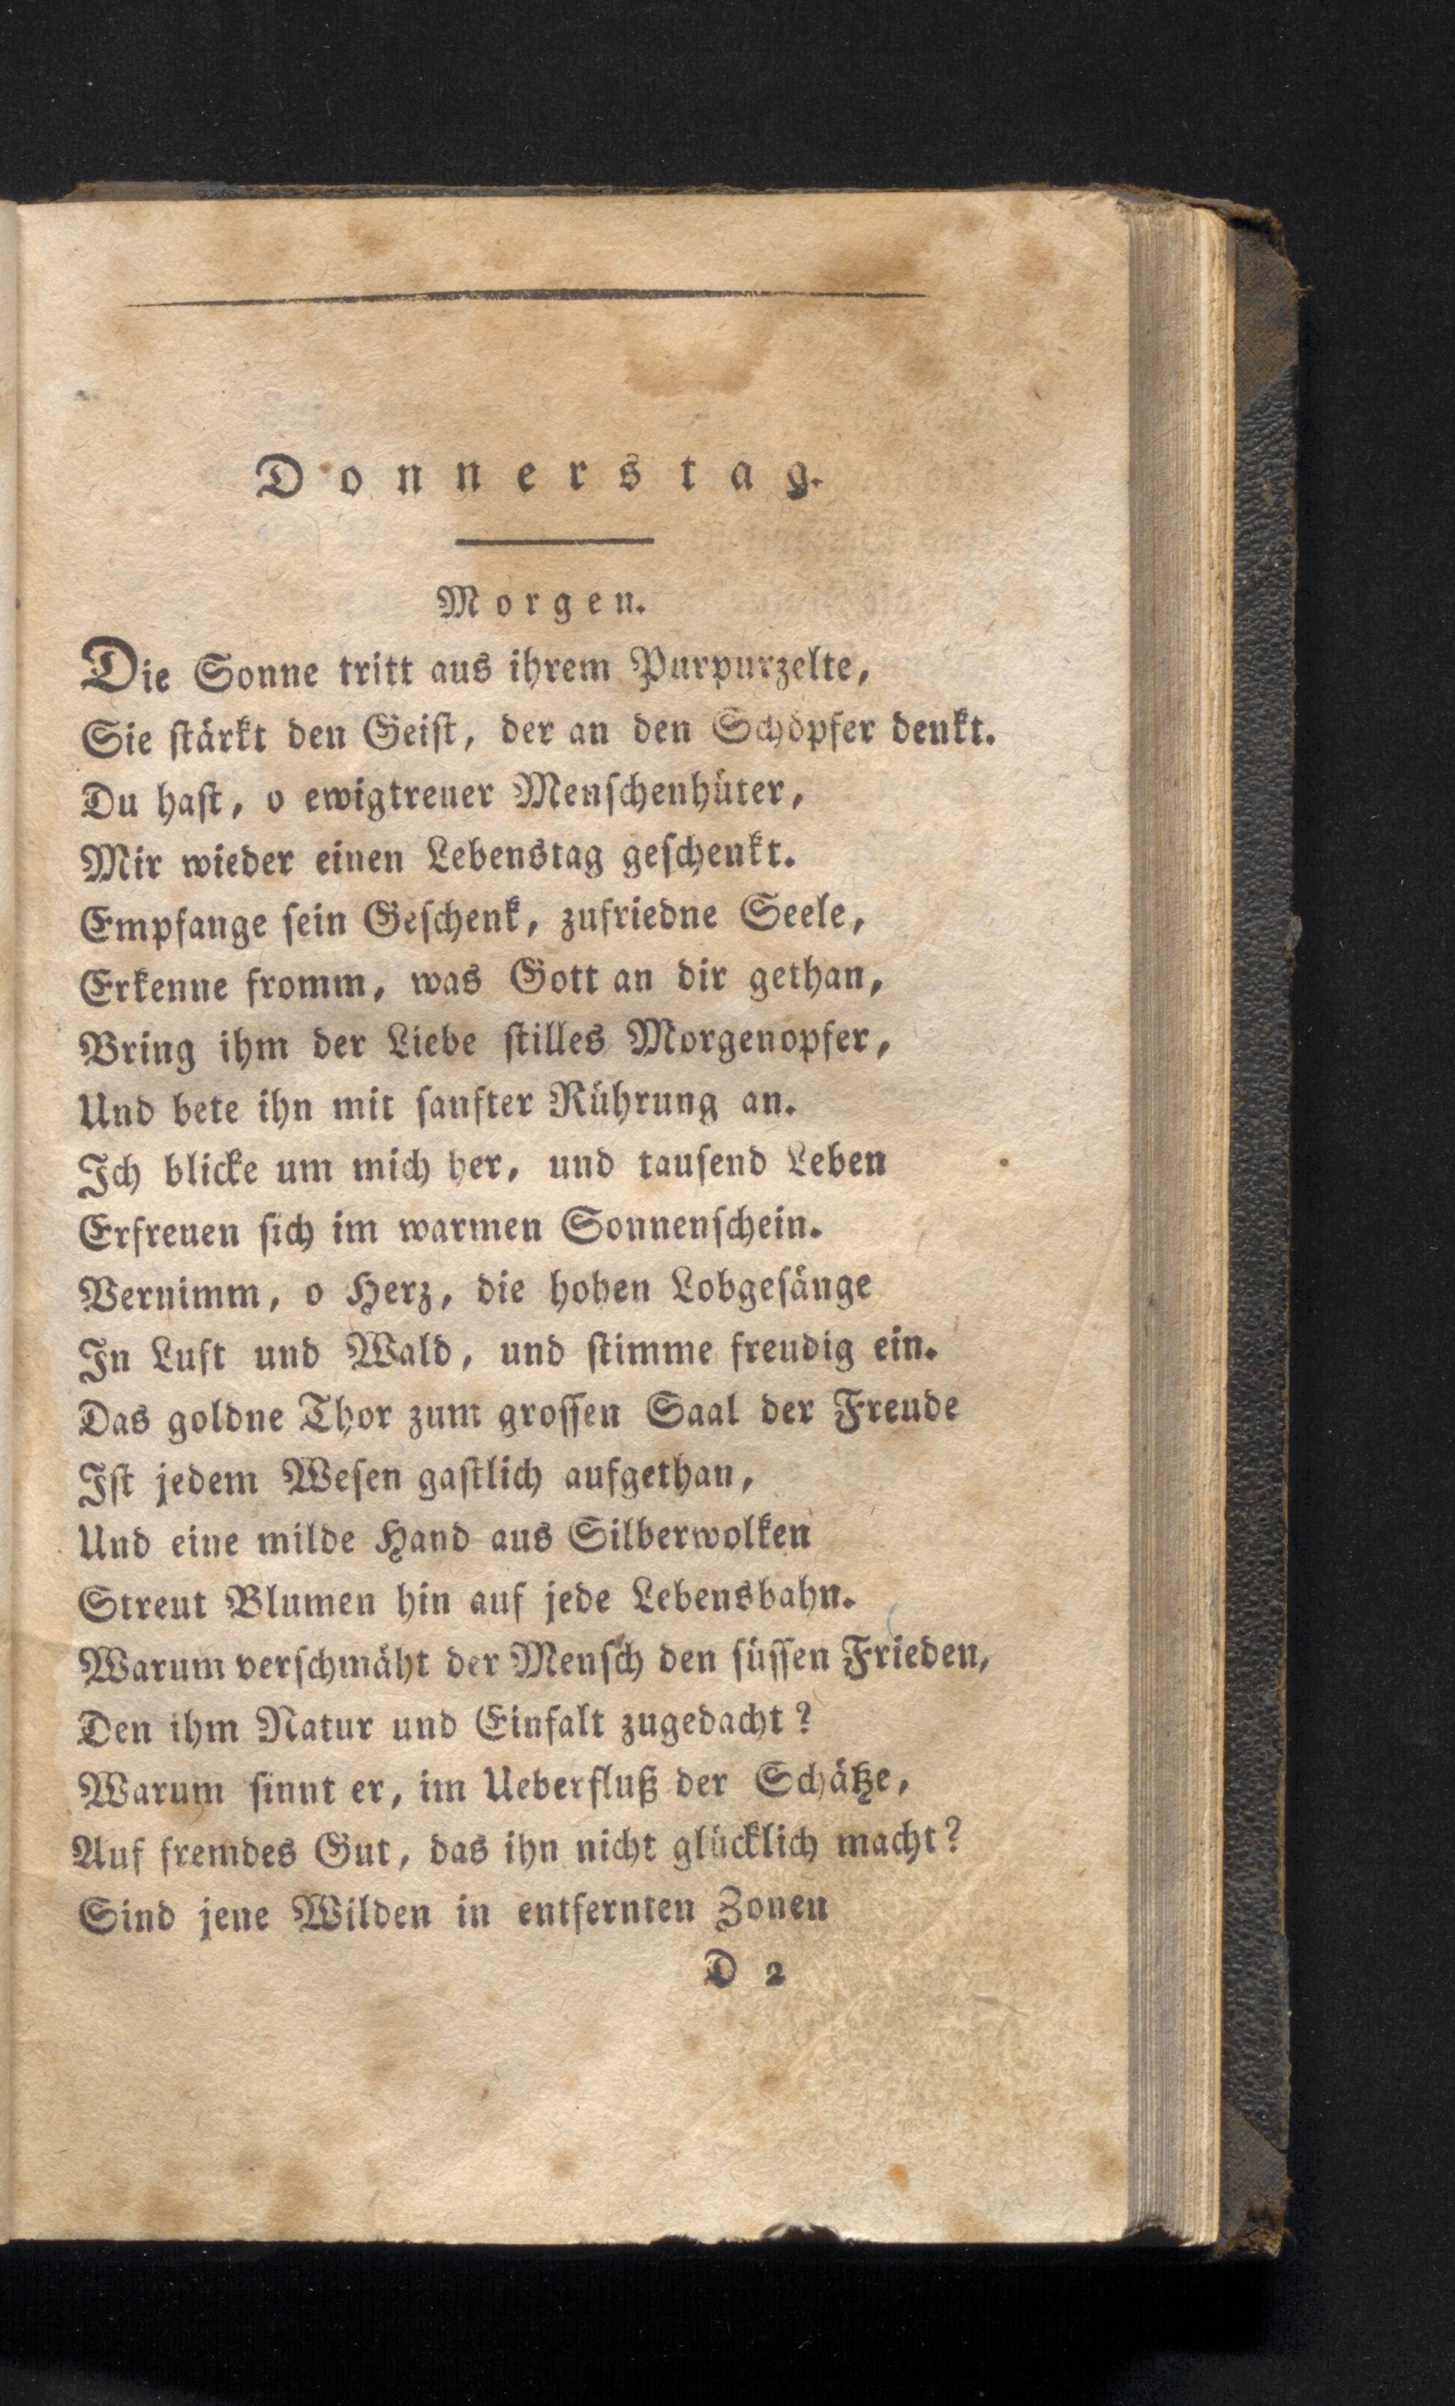 Donnerstag.
Morgen.
Die Sonne tritt aus ihrem Purpurzelte,
Sie ſtärkt den Geiſt, der an den Schöpfer denkt.
Du haſt, o ewigtreuer Menſchenhüter,
Mir wieder einen Lebenstag geſchenkt.
Empfange ſein Geſchenk, zufriedne Seele,
Erkenne fromm, was Gott an dir gethan,
Bring ihm der Liebe ſtilles Morgenopfer,
Und bete ihn mit ſanfter Rührung an.
Ich blicke um mich her, und tauſend Leben
Erfreuen ſich im warmen Sonnenſchein.
Vernimm, o Herz, die hohen Lobgeſänge
In Luft und Wald, und ſtimme freudig ein.
Das goldne Thor zum groſſen Saal der Freude
Iſt jedem Weſen gaſtlich aufgethan,
Und eine milde Hand aus Silberwolken
Streut Blumen hin auf jede Lebensbahn.
Warum verſchmäht der Menſch den ſüſſen Frieden,
Den ihm Natur und Einfalt zugedacht?
Warum ſinnt er, im Ueberfluß der Schätze,
Auf fremdes Gut, das ihn nicht glücklich macht?
Sind jene Wilden in entfernten Zonen
D 2